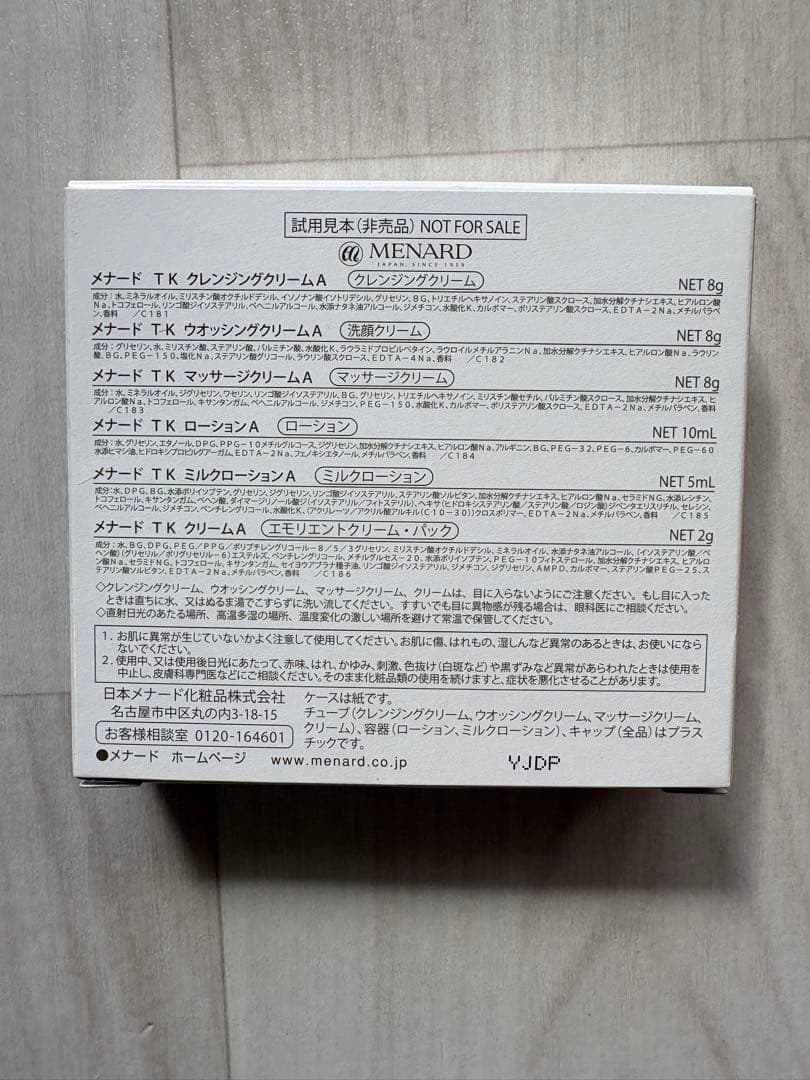 試用見本(非売品) NOT FOR SALE
MENARD
JAPAN, SINCE 1959
メナード TK クレンジングクリームA クレンジングクリーム NET 8g
成分:水、ミネラルオイル、ミリスチン酸オクチルドデシル、イソノナン酸イソトリデシル、グリセリン、BG、トリエチルヘキサノイン、ステアリン酸スクロース、加水分解クチナシエキス、ヒアルロン酸
Na、トコフェロール、リンゴ酸ジイソステアリル、ベヘニルアルコール、水添ナタネ油アルコール、ジメチコン、水酸化K、カルボマー、ポリステアリン酸スクロース、EDTA-2Na、メチルパラベ
ン、香料 /C181
メナード TK ウオッシングクリームA 洗顔クリーム NET 8g
成分:グリセリン、水、ミリスチン酸、ステアリン酸、パルミチン酸、水酸化K、ラウラミドプロピルベタイン、ラウロイルメチルアラニンNa、加水分解クチナシエキス、ヒアルロン酸Na、ラウリン
酸、BG、PEG-150、塩化Na、ステアリン酸グリコール、ラウリン酸スクロース、EDTA-4Na、香料 /C182
メナード TK マッサージクリームA マッサージクリーム NET 8g
成分:水、ミネラルオイル、ジグリセリン、ワセリン、リンゴ酸ジイソステアリル、BG、グリセリン、トリエチルヘキサノイン、ミリスチン酸セチル、パルミチン酸スクロース、加水分解クチナシエキス、ヒ
アルロン酸Na、トコフェロール、キサンタンガム、ベヘニルアルコール、ジメチコン、PEG-150、水酸化K、カルボマー、ポリステアリン酸スクロース、EDTA-2Na、メチルパラベン、香料
/C183
メナード TK ローションA ローション NET 10mL
成分:水、グリセリン、エタノール、DPG、PPG-10メチルグルコース、ジグリセリン、加水分解クチナシエキス、ヒアルロン酸Na、アルギニン、BG、PEG-32、PEG-6、カルボマー、PEG-60
水添ヒマシ油、ヒドロキシプロピルグアーガム、EDTA-2Na、フェノキシエタノール、メチルパラベン、香料 /C184
メナード TK ミルクローションA ミルクローション NET 5mL
成分:水、DPG、BG、水添ポリイソブテン、グリセリン、ジグリセリン、リンゴ酸ジイソステアリル、ステアリン酸ソルビタン、加水分解クチナシエキス、ヒアルロン酸Na、セラミドNG、水添レシチン、
トコフェロール、キサンタンガム、ベヘン酸、ダイマージリノール酸ジ(イソステアリル/フィトステリル)、ヘキサ(ヒドロキシステアリン酸/ステアリン酸/ロジン酸)ジペンタエリスリチル、セレシン、
ベヘニルアルコール、ジメチコン、ペンチレングリコール、水酸化K、(アクリレーツ/アクリル酸アルキル(C10-30))クロスポリマー、EDTA-2Na、メチルパラベン、香料 /C185
メナード TK クリームA エモリエントクリーム・パック NET 2g
成分:水、BG、DPG、PEG/PPG/ポリブチレングリコール-8/5/3グリセリン、ミリスチン酸オクチルドデシル、ミネラルオイル、水添ナタネ油アルコール、(イソステアリン酸/ベ
ヘン酸)(グリセリル/ポリグリセリル-6)エステルズ、ペンチレングリコール、メチルグルセス-20、水添ポリイソブテン、PEG-10フィトステロール、加水分解クチナシエキス、ヒアルロン
酸Na、セラミドNG、トコフェロール、キサンタンガム、セイヨウアブラナ種子油、リンゴ酸ジイソステアリル、ジメチコン、ジグリセリン、AMPD、カルボマー、ステアリン酸PEG-25、ス
テアリン酸ソルビタン、EDTA-2Na、メチルパラベン、香料 /C186
◇クレンジングクリーム、ウオッシングクリーム、マッサージクリーム、クリームは、目に入らないようにご注意ください。もし目に入った
ときは直ちに水、又はぬるま湯でこすらずに洗い流してください。すすいでも目に異物感が残る場合は、眼科医にご相談ください。
◇直射日光のあたる場所、高温多湿の場所、温度変化の激しい場所を避けて常温で保管してください。
1. お肌に異常が生じていないかよく注意して使用してください。お肌に傷、はれもの、湿しんなど異常のあるときは、お使いになら
ないでください。
2. 使用中、又は使用後日光にあたって、赤味、はれ、かゆみ、刺激、色抜け(白斑など)や黒ずみなど異常があらわれたときは使用を
中止し、皮膚科専門医などにご相談ください。そのまま化粧品類の使用を続けますと、症状を悪化させることがあります。
日本メナード化粧品株式会社
名古屋市中区丸の内3-18-15
お客様相談室 0120-164601
ケースは紙です。
チューブ(クレンジングクリーム、ウオッシングクリーム、マッサージクリーム、
クリーム)、容器(ローション、ミルクローション)、キャップ(全品)はプラス
チックです。
●メナード ホームページ www.menard.co.jp
YJDP